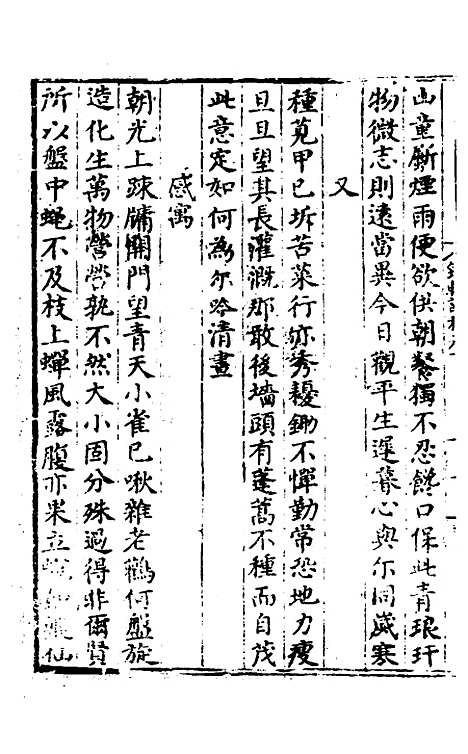 山童斸煙雨便欲供朝餐獨不忍饞口保此青琅玕
物微志則遠當異今日觀平生遲暮心與尔同歲寒
又
種莧甲已坼苦菜行亦秀耰鋤不憚勤常恐地力瘦
旦旦望其長灌溉那敢後墻頭有蓬蒿不種而自茂
此意定如何為尔哈清晝
感寓
朝光上疎牖開門望青天小雀已啾雜老鸛何盤旋
造化生萬物營營孰不然大小固分殊過得非爾賢
所以盤中蠅不及枝上蟬風露腹亦果立
仙